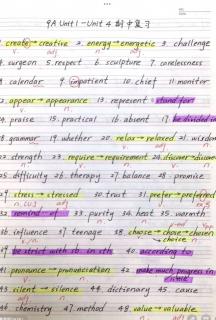 9A Unit 1 - Unit 4 期中复习
1. create → creative 2. energy → energetic 3. challenge
v. adj n. adj
4. surgeon 5. respect 6. sculpture 7. carelessness
8. calendar 9. impatient 10. chief 11. monitor
12. appear → appearance 13. represent = stand for
14. praise 15. practical 16. absent 17. be divided in
18. grammar 19. whether 20. relax → relaxed 21. wisdom
22. strength 23. require → requirement 24.
25. difficulty 26. therapy 27. balance 28. promise
29. stress → stressed 30. trust 31. prefer → preferred
32. remind of 33. purity 34. heat 35. warmth
36. influence 37. teenage 38. choose → chose → chosen
→ choice n.
39. be strict with sb. in sth. 40. according to
41. pronounce → pronunciation 42. make much progress in
43. silent → silence 44. dictionary 45. cause
46. chemistry 47. method 48. value → valuable